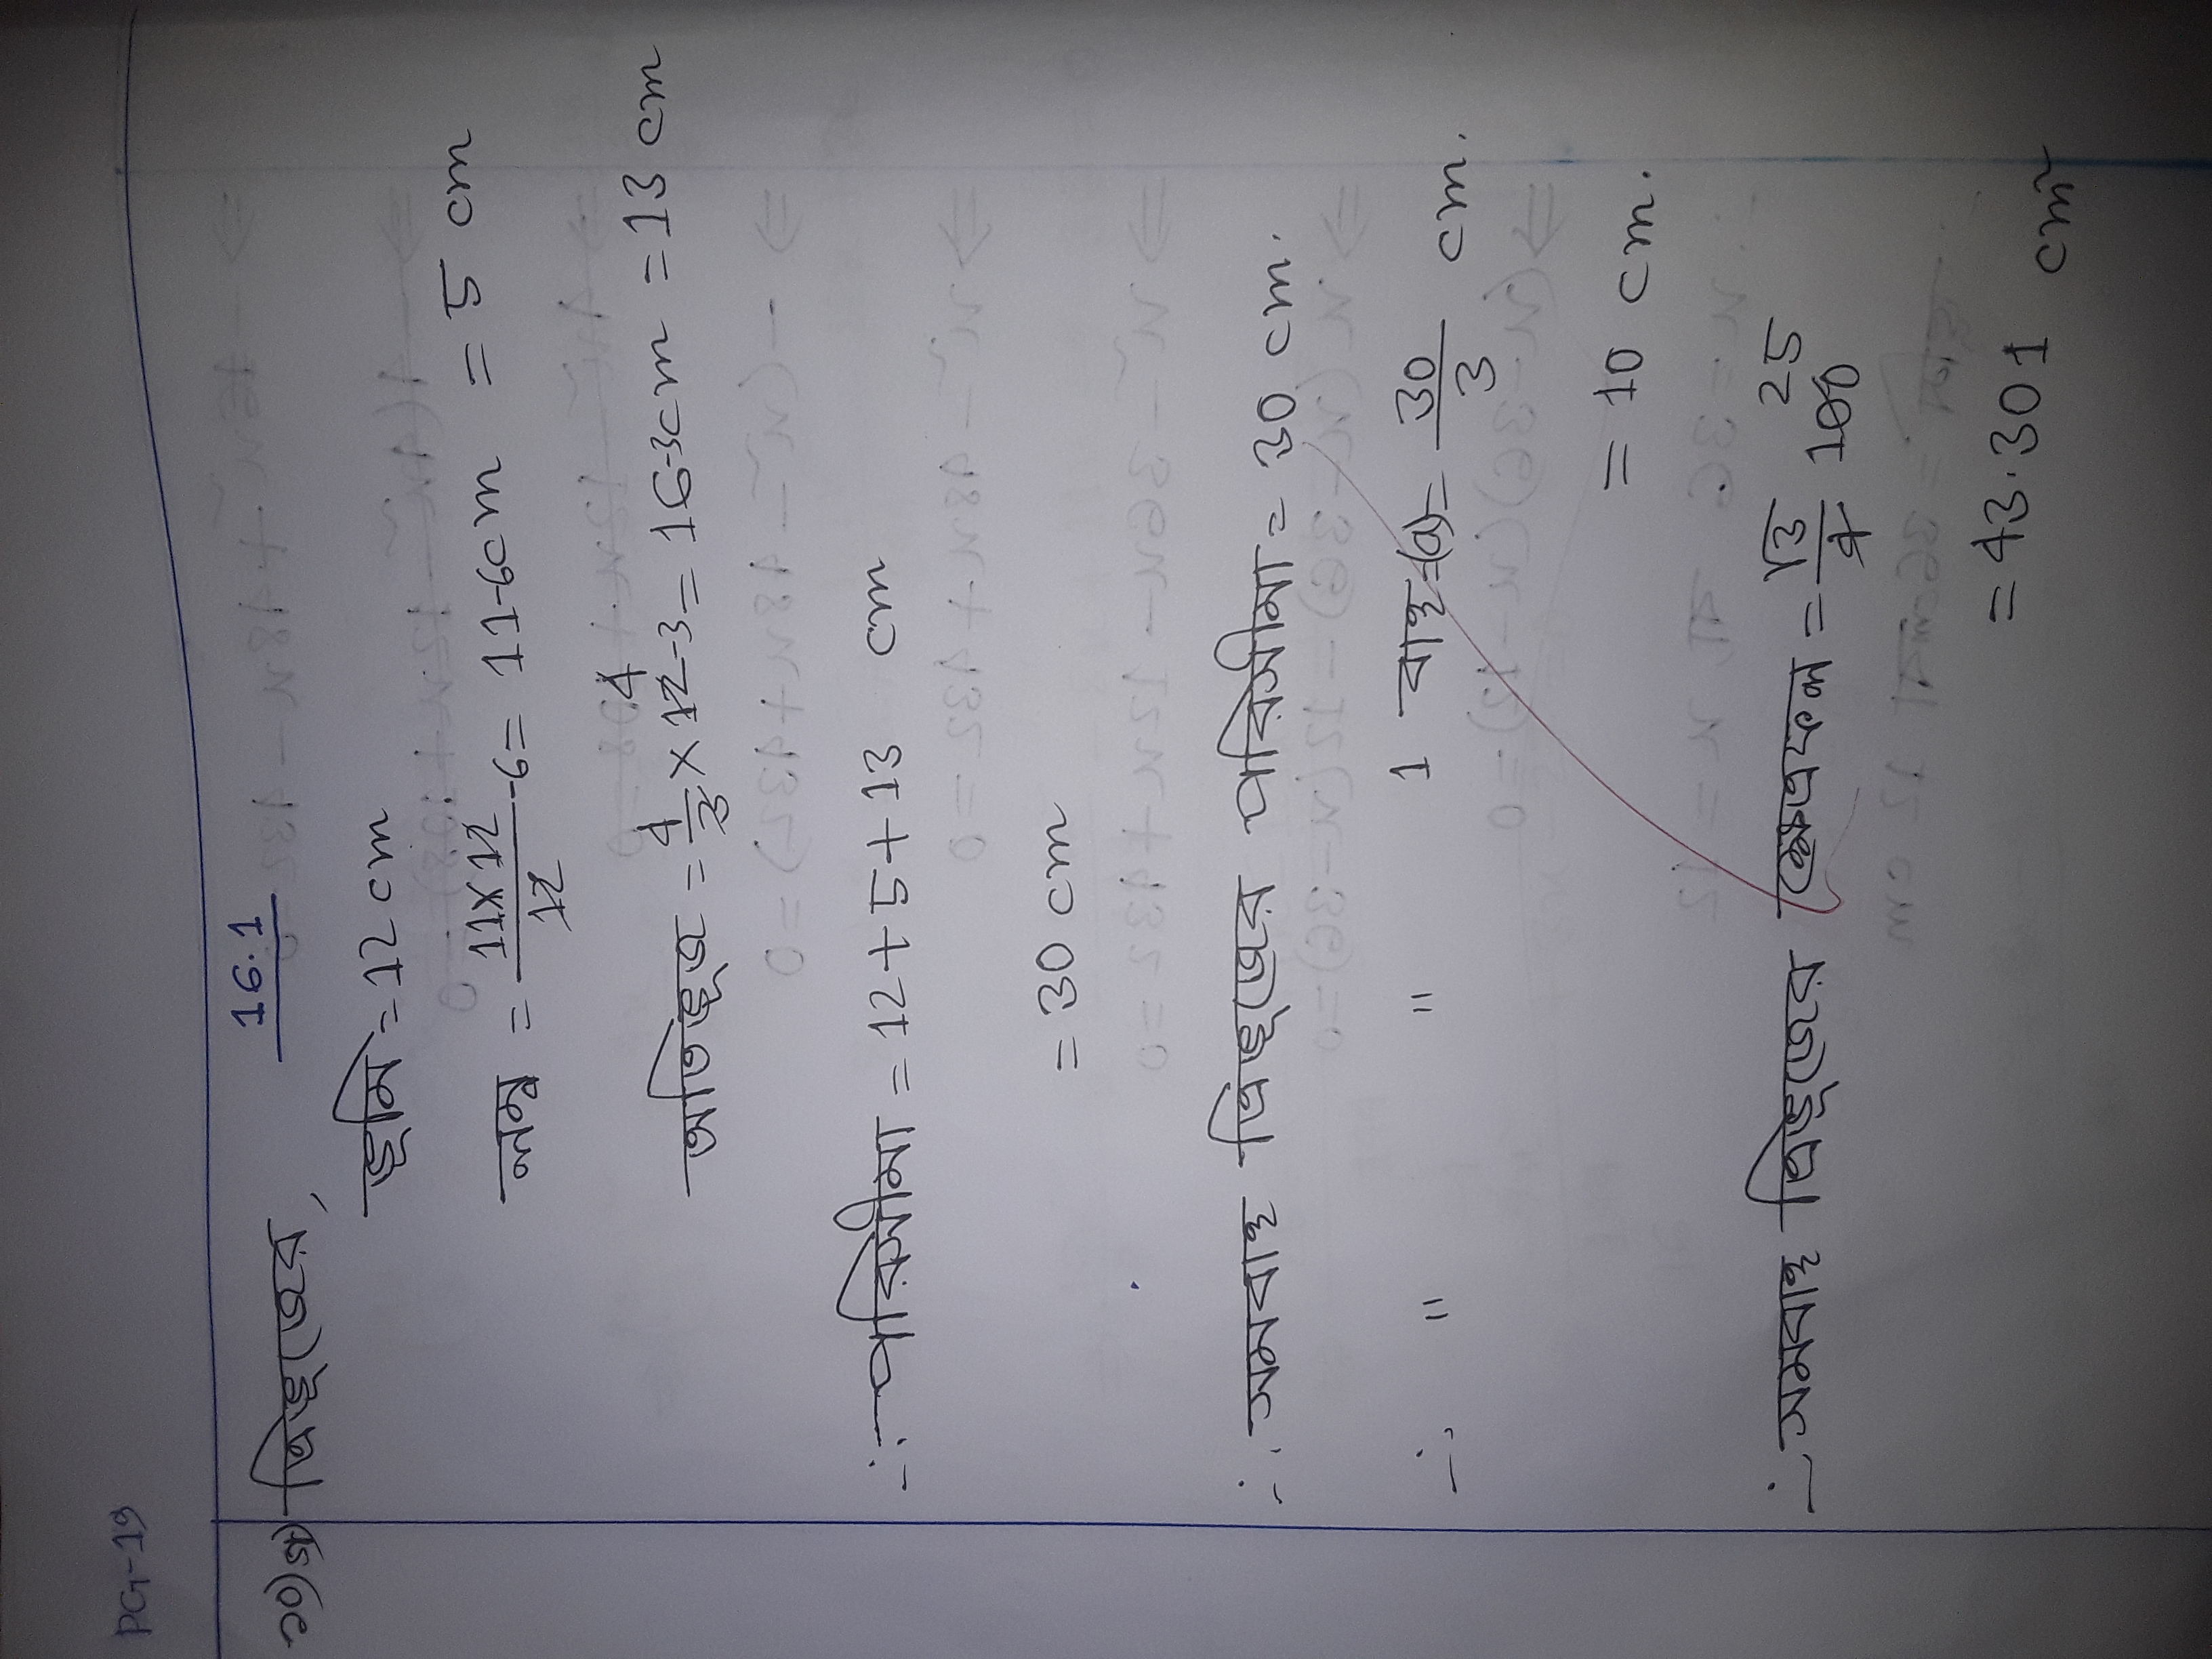 PG-19
16.1
২০) গ) ত্রিভুজের,
ভূমি = 12 cm
লম্ব = 11×12/12 -6 = 11-6cm = 5 cm
4
অতিভূজ = 4/3 × 12-3 = 16-3cm = 13 cm
∴ পরিসীমা = 12+5+13 cm
= 30 cm
∴ সমবাহু ত্রিভূজের পরিসীমা = 30 cm.
∴ " " 1 বাহু =(a)= 30/3 cm.
= 10 cm.
∴ সমবাহু ত্রিভূজের ক্ষেত্রফল = √3/4 100 25
= 43.301 cm²